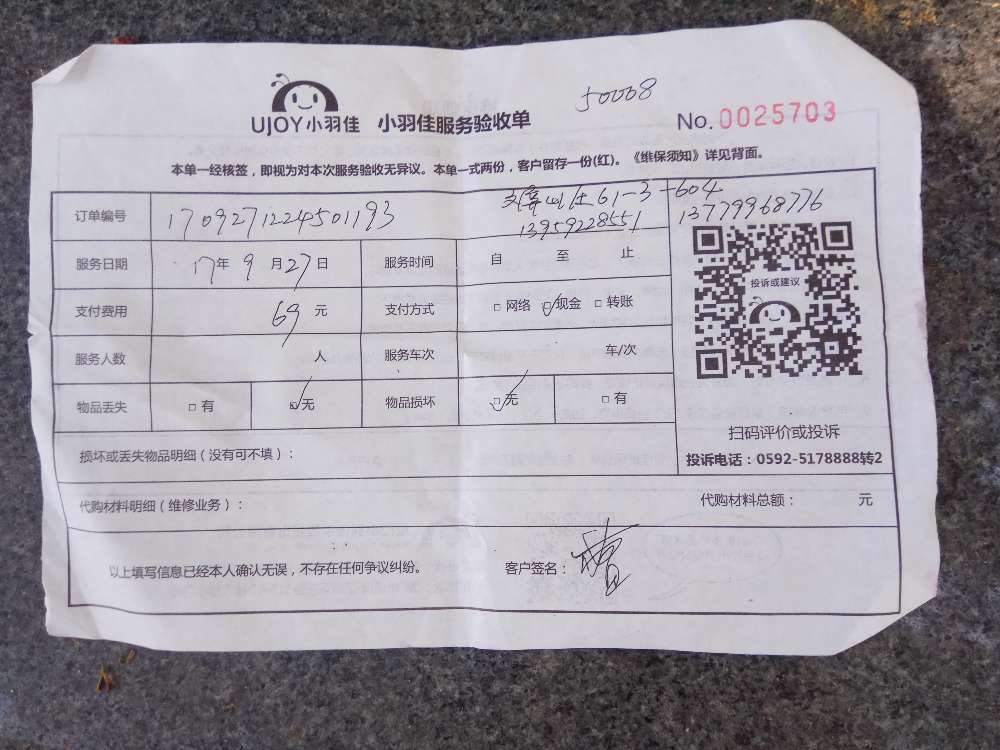 50008
UJOY小羽佳 小羽佳服务验收单 No. 0025703
本单一经核签，即视为对本次服务验收无异议。本单一式两份，客户留存一份(红)。《维保须知》详见背面。
订单编号 1709271224501193 61-3-604
13959228551 13779968776
服务日期 17年9月27日 服务时间 自 至 止
投诉或建议
支付费用 69元 支付方式 □网络 ☑现金 □转账
服务人数 人 服务车次 车/次
物品丢失 □有 ☑无 物品损坏 ☑无 □有
扫码评价或投诉
损坏或丢失物品明细（没有可不填）：
投诉电话：0592-5178888转2
代购材料明细（维修业务）： 代购材料总额： 元
以上填写信息已经本人确认无误，不存在任何争议纠纷。 客户签名：